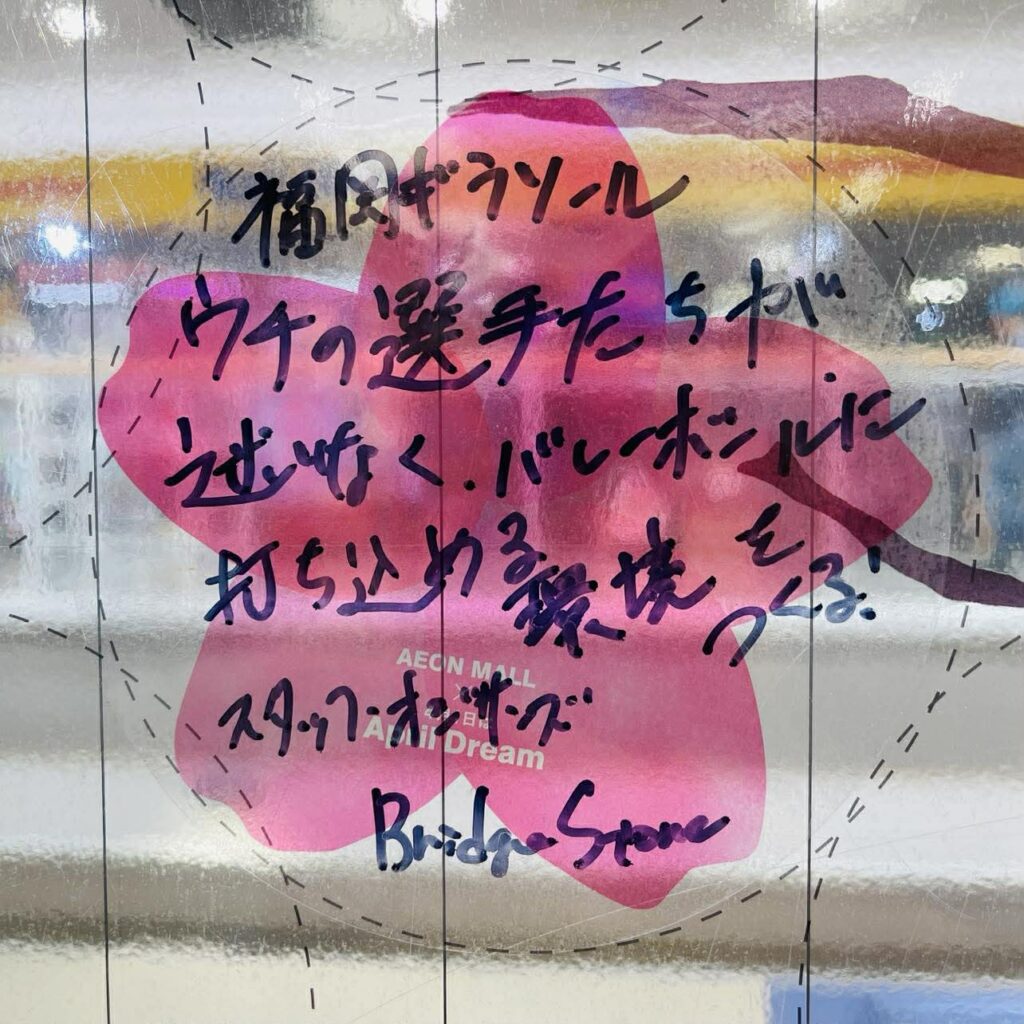 福岡ギラソール
ウチの選手たちが、
迷いなく、バレーボールに
打ち込める環境を
つくる!
AEON MALL
×
4月1日は
April Dream
スタッフ・オジサーズ
Bridge Stone